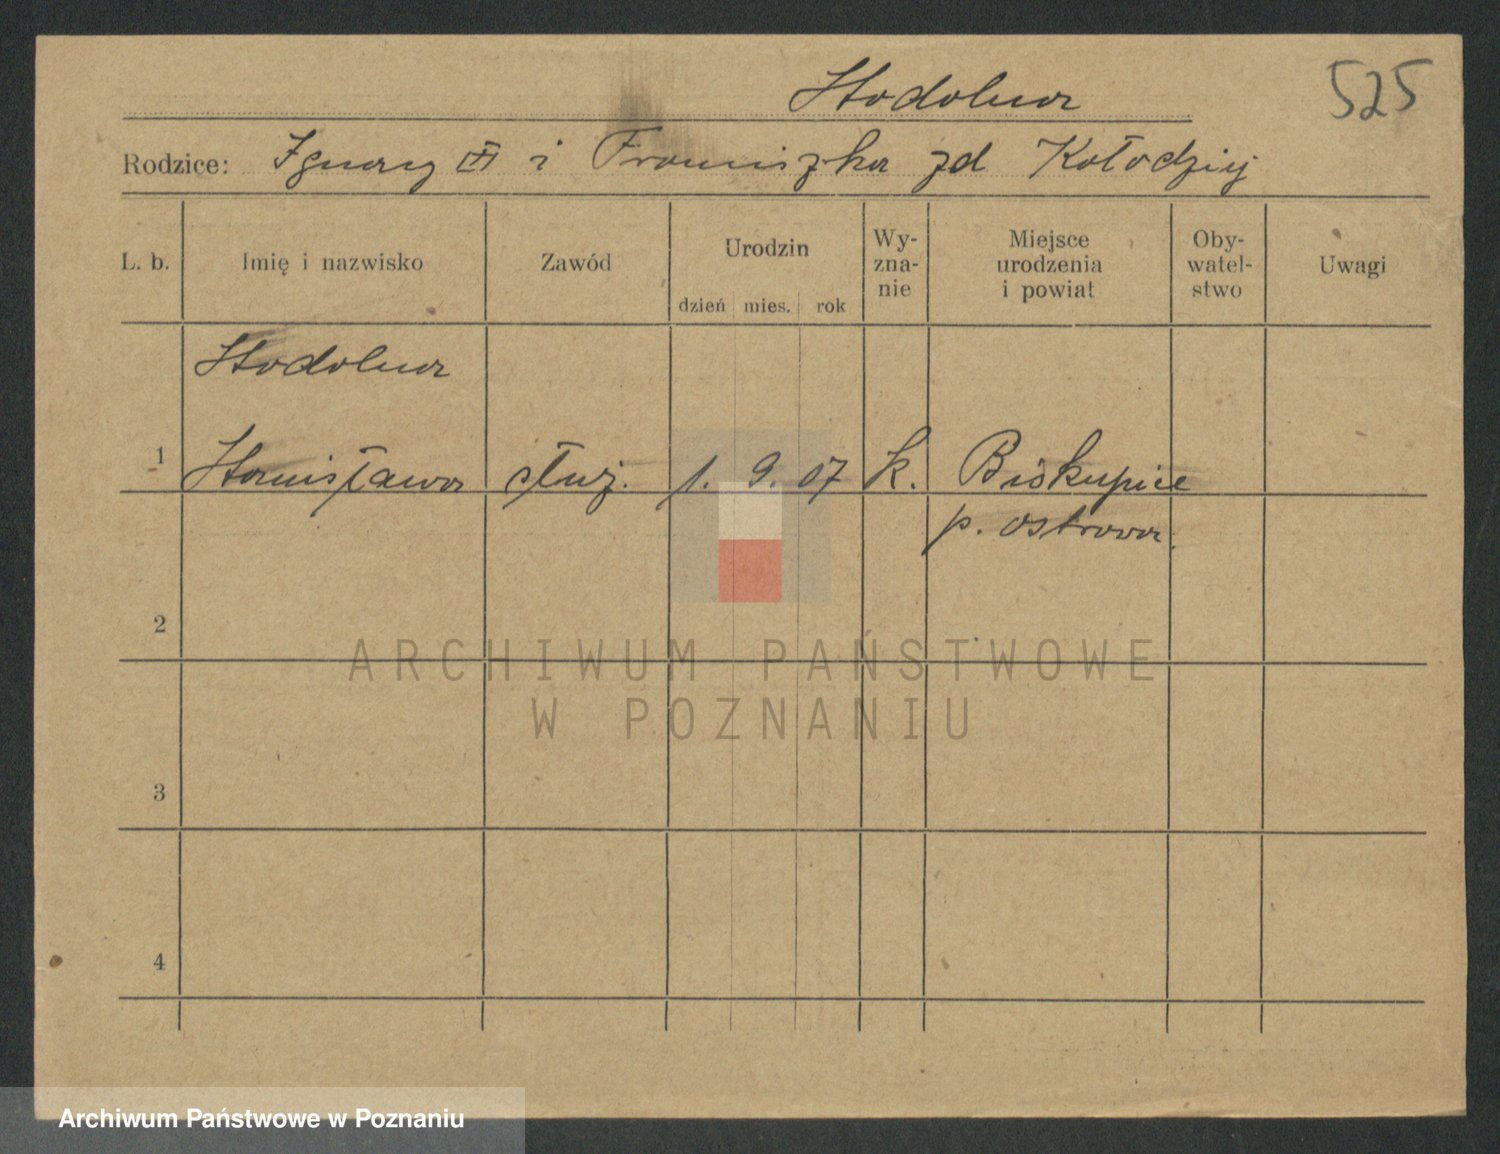 Stodolna
525
Rodzice: Ignacy i Franciszka zd Kołodziej
L. b. Imię i nazwisko Zawód Urodzin dzień mies. rok Wy- zna- nie Miejsce urodzenia i powiat Oby- watel- stwo Uwagi
Stodolna
1 Stanisława służ. 1. 9. 07 k. Biskupice
p. Ostrowa.
2
ARCHIWUM PAŃSTWOWE
W POZNANIU
3
4
Archiwum Państwowe w Poznaniu